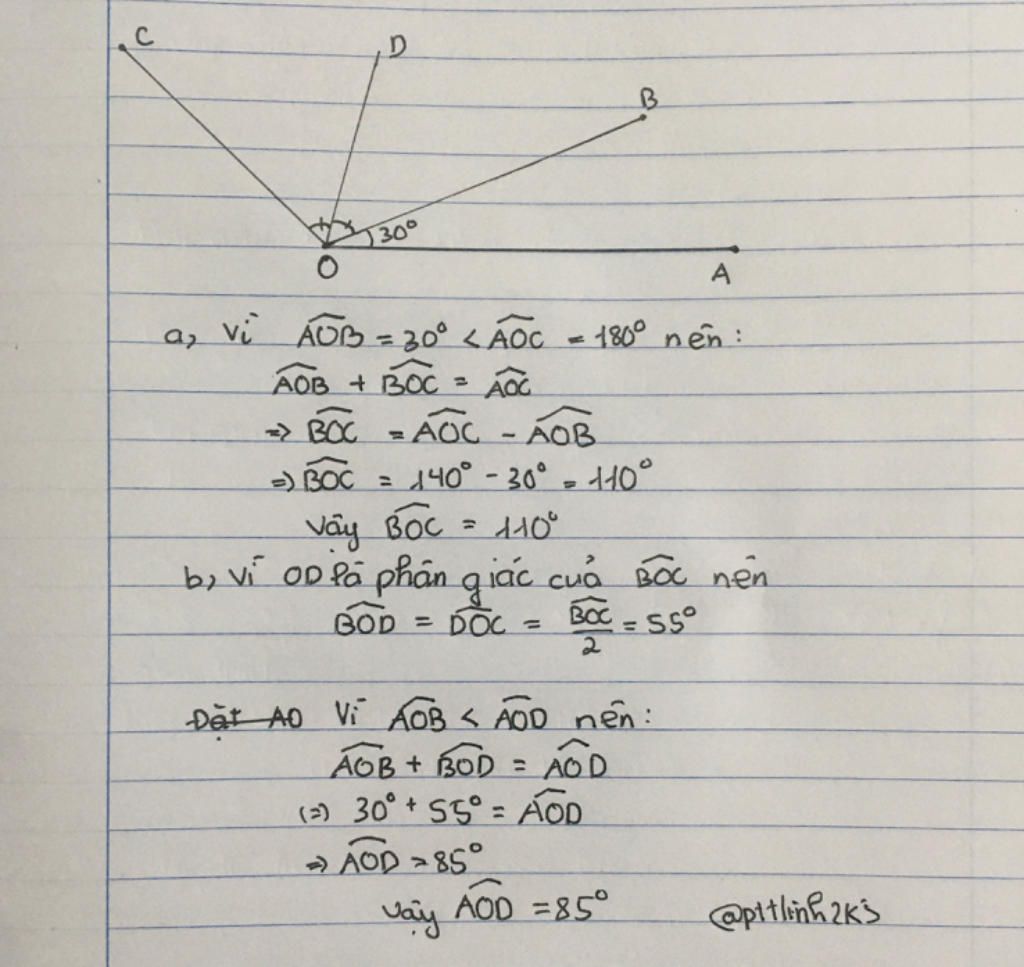 C
D
B
30°
O
A
a, Vì AOB = 30° < AOC = 180° nên:
AOB + BOC = AOC
=> BOC = AOC - AOB
=> BOC = 140° - 30° = 110°
Vậy BOC = 110°
b, Vì OD là phân giác của BOC nên
BOD = DOC = BOC/2 = 55°
Đặt AO Vì AOB < AOD nên:
AOB + BOD = AOD
(=) 30° + 55° = AOD
=> AOD = 85°
Vậy AOD = 85°
@pttlinh2k5